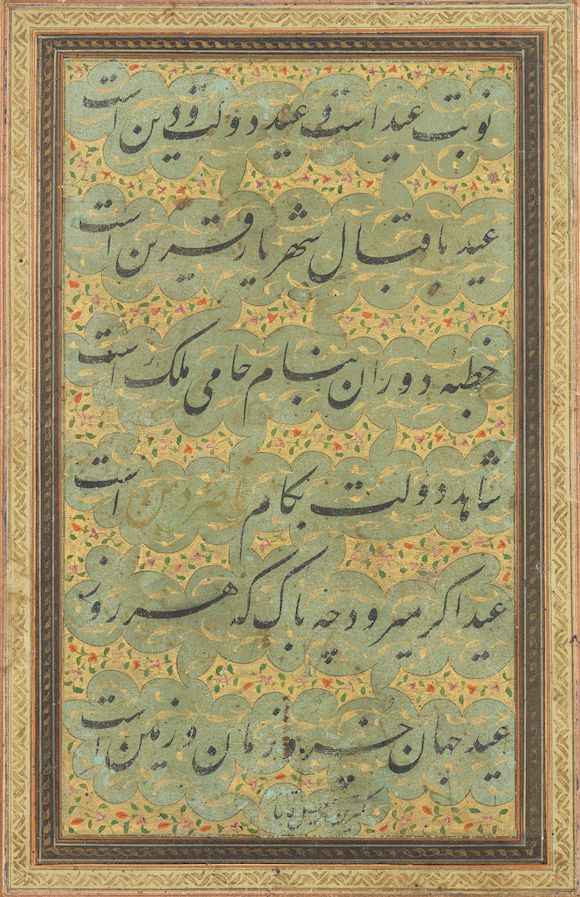 نوبت عید است و عید دولت و دین است
عید باقبال شهریار قرین است
خطبهٔ دوران بنام حامی ملک است
شاهد دولت بکام ناصر دین است
عید اکر میرود چه باک که هر روز
عید جهان خسرو زمان و زمین است
کمترین